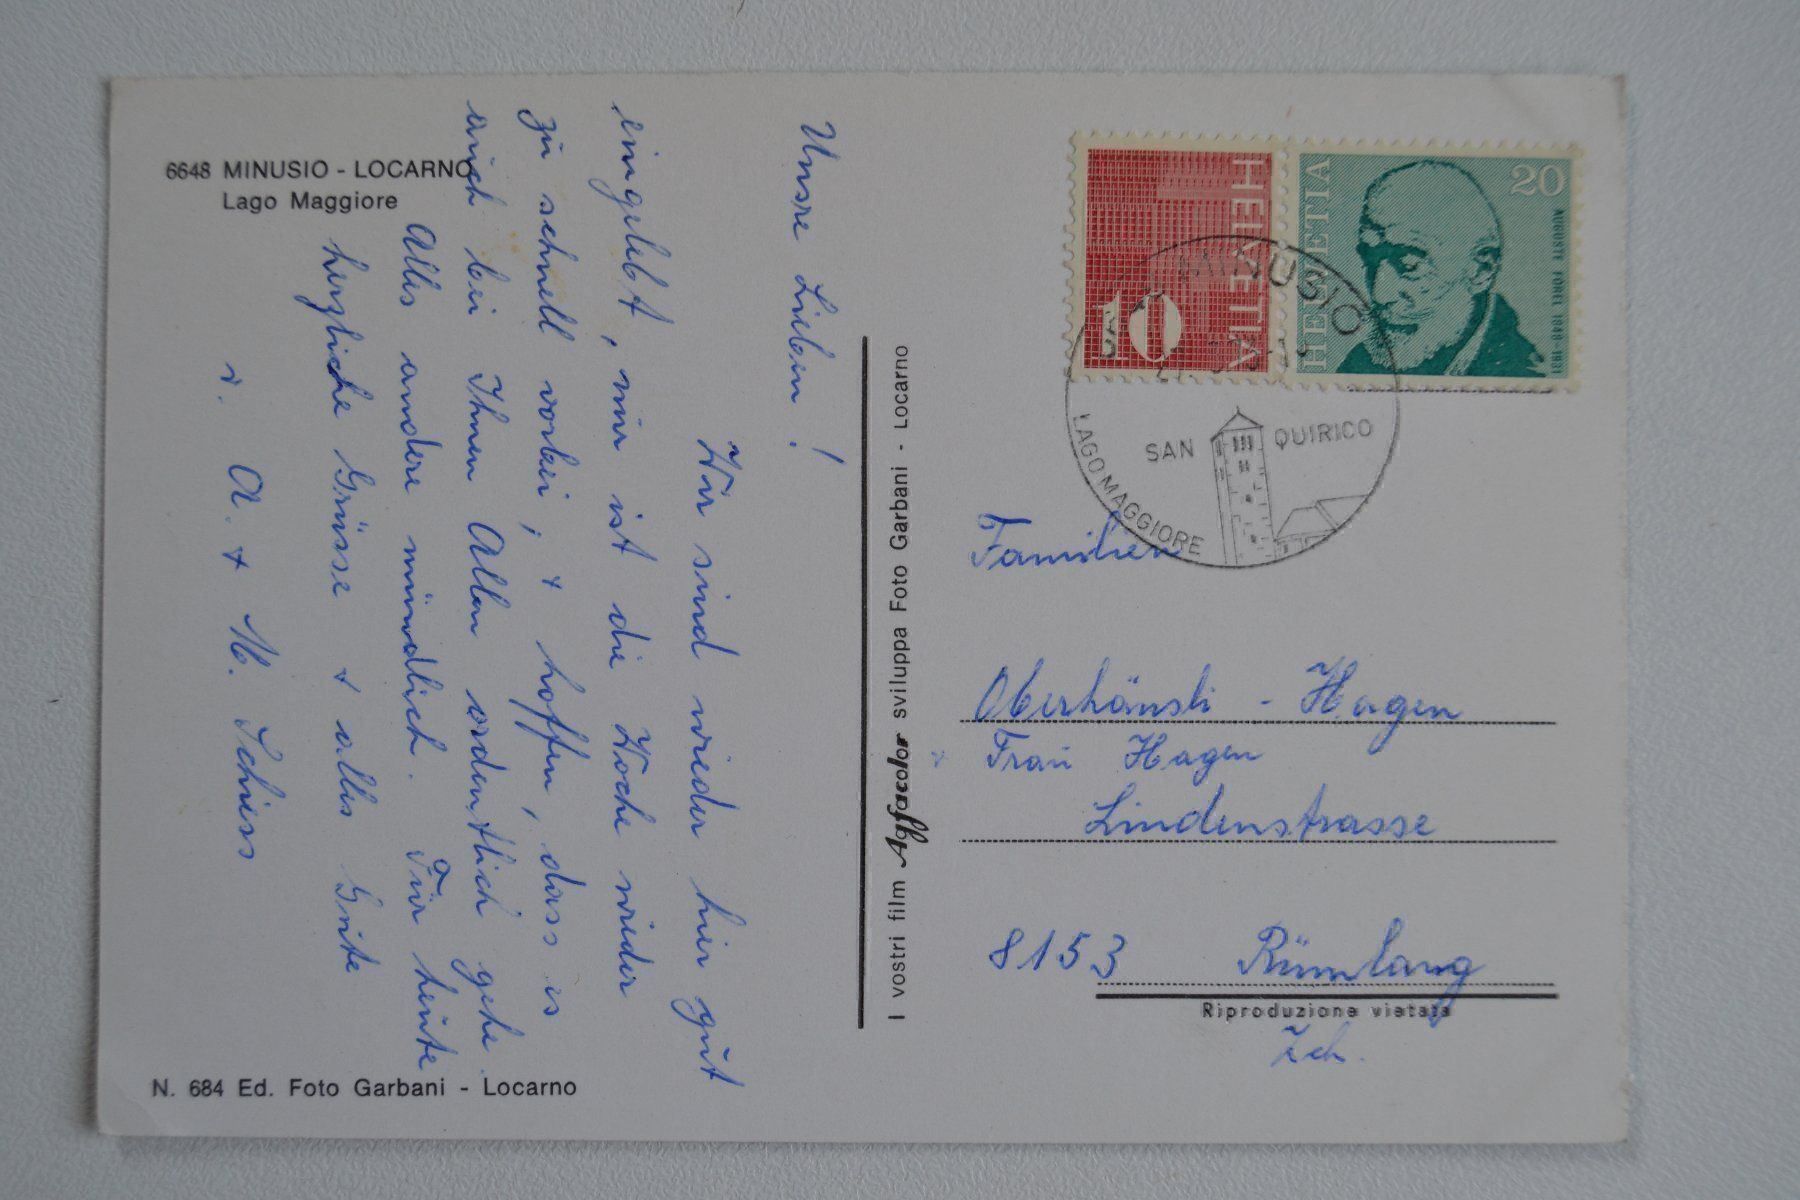 6648 MINUSIO - LOCARNO
Lago Maggiore
Unsre Lieben!
Wir sind wieder hier gut
eingelebt, nur ist die Woche wieder
zu schnell vorbei, + hoffen, dass es
auch bei Ihnen Allen ordentlich gehe.
Alles andere mündlich. Für heute
herzliche Grüsse + alles Gute
v. A. + M. Schiess
N. 684 Ed. Foto Garbani - Locarno
I vostri film Agfacolor sviluppa Foto Garbani - Locarno
HELVETIA
10
HELVETIA
20
AUGUSTE FOREL 1848-1931
MINUSIO
SAN QUIRICO
LAGO MAGGIORE
Familien
Oberhänsli - Hagen
+ Frau Hagen
Lindenstrasse
8153 Rümlang
Riproduzione vietata
Zch.